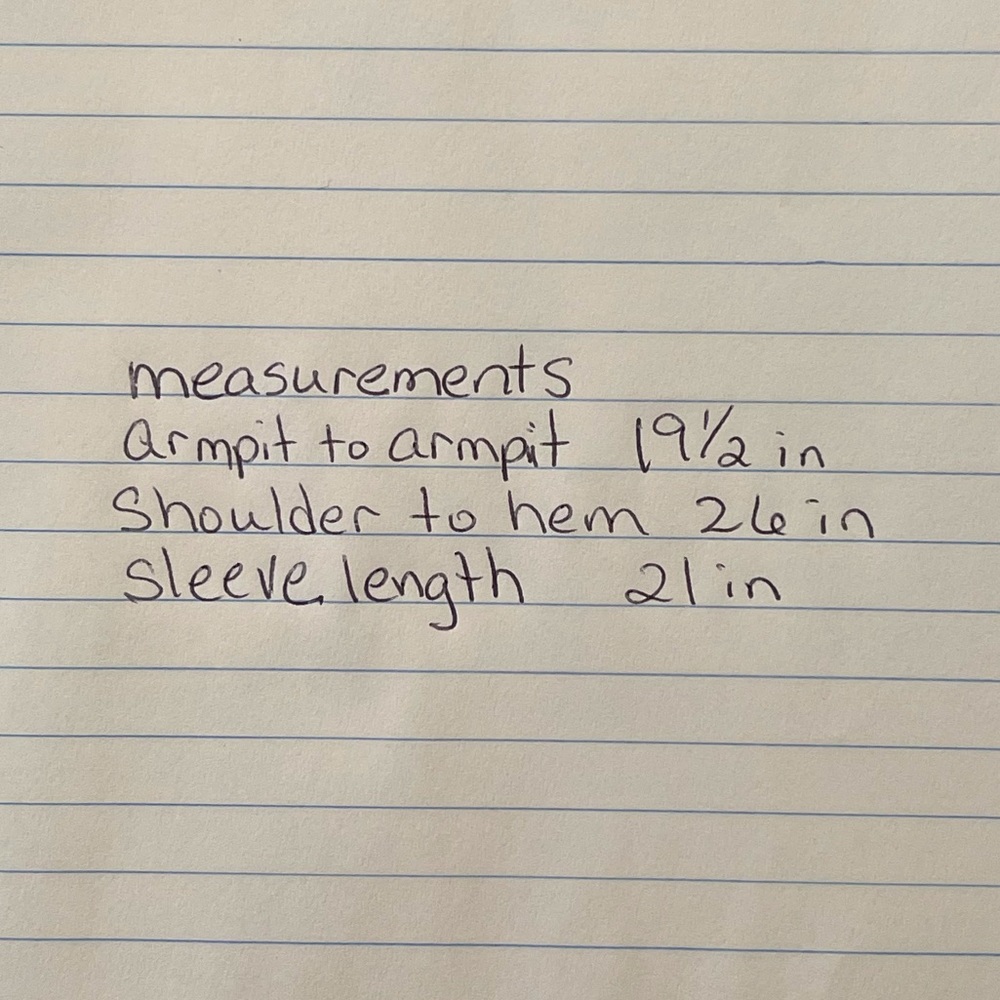 measurements
armpit to armpit 19 1/2 in
Shoulder to hem 26 in
Sleeve length 21 in